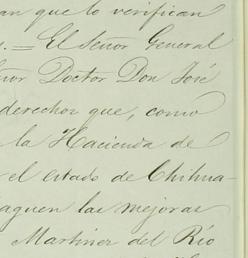 an que lo verifican
s. = El Señor General
eñor Doctor Don José
derechos que, como
la Hacienda de
el estado de Chihua-
aguen las mejoras
Martinez del Río